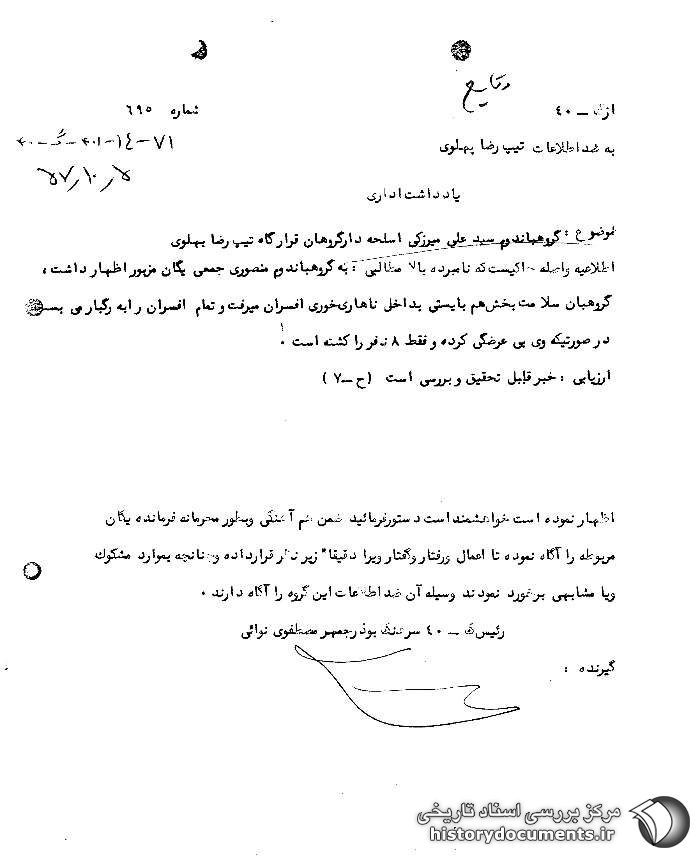 وقایع
از گ ـ ۴۰
شماره ۶۹۵
به ضد اطلاعات تیپ رضا پهلوی
۷۱-۱۴-۴۰۱-گ-۴۰
۵۷/۱۰/۵
یادداشت اداری
موضوع : گروهباندوم سید علی میرزکی اسلحه دار گروهان قرارگاه تیپ رضا پهلوی
اطلاعیه واصله حاکیست که نامبرده بالا مطالبی : به گروهباندوم منصوری جمعی یگان مزبور اظهار داشته ،
گروهبان سلامت بخش هم بایستی بداخل ناهارخوری افسران میرفت و تمام افسران را به رگبار می بست
در صورتیکه وی بی عرضگی کرده و فقط ۸ نفر را کشته است !
ارزیابی : خبر قابل تحقیق و بررسی است (ح ـ ۷)
اظهار نموده است خواهشمند است دستور فرمائید ضمن هم آهنگی وبطور محرمانه فرمانده یگان
مربوطه را آگاه نموده تا اعمال ورفتار وگفتار ویرا دقیقا" زیر نظر قرار داده وچنانچه بموارد مشکوک
ویا مشابهی برخورد نمودند وسیله آن ضد اطلاعات این گروه را آگاه دارند .
رئیس گ ـ ۴۰ سرهنگ بوذرجمهر مصطفوی نوائی
گیرنده :
مرکز بررسی اسناد تاریخی
historydocuments.ir